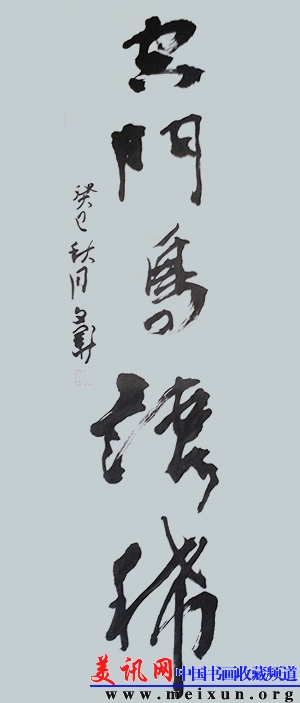 空門鳥語稀
癸巳秋月文華
美讯网 中国书画收藏频道
www.meixun.org